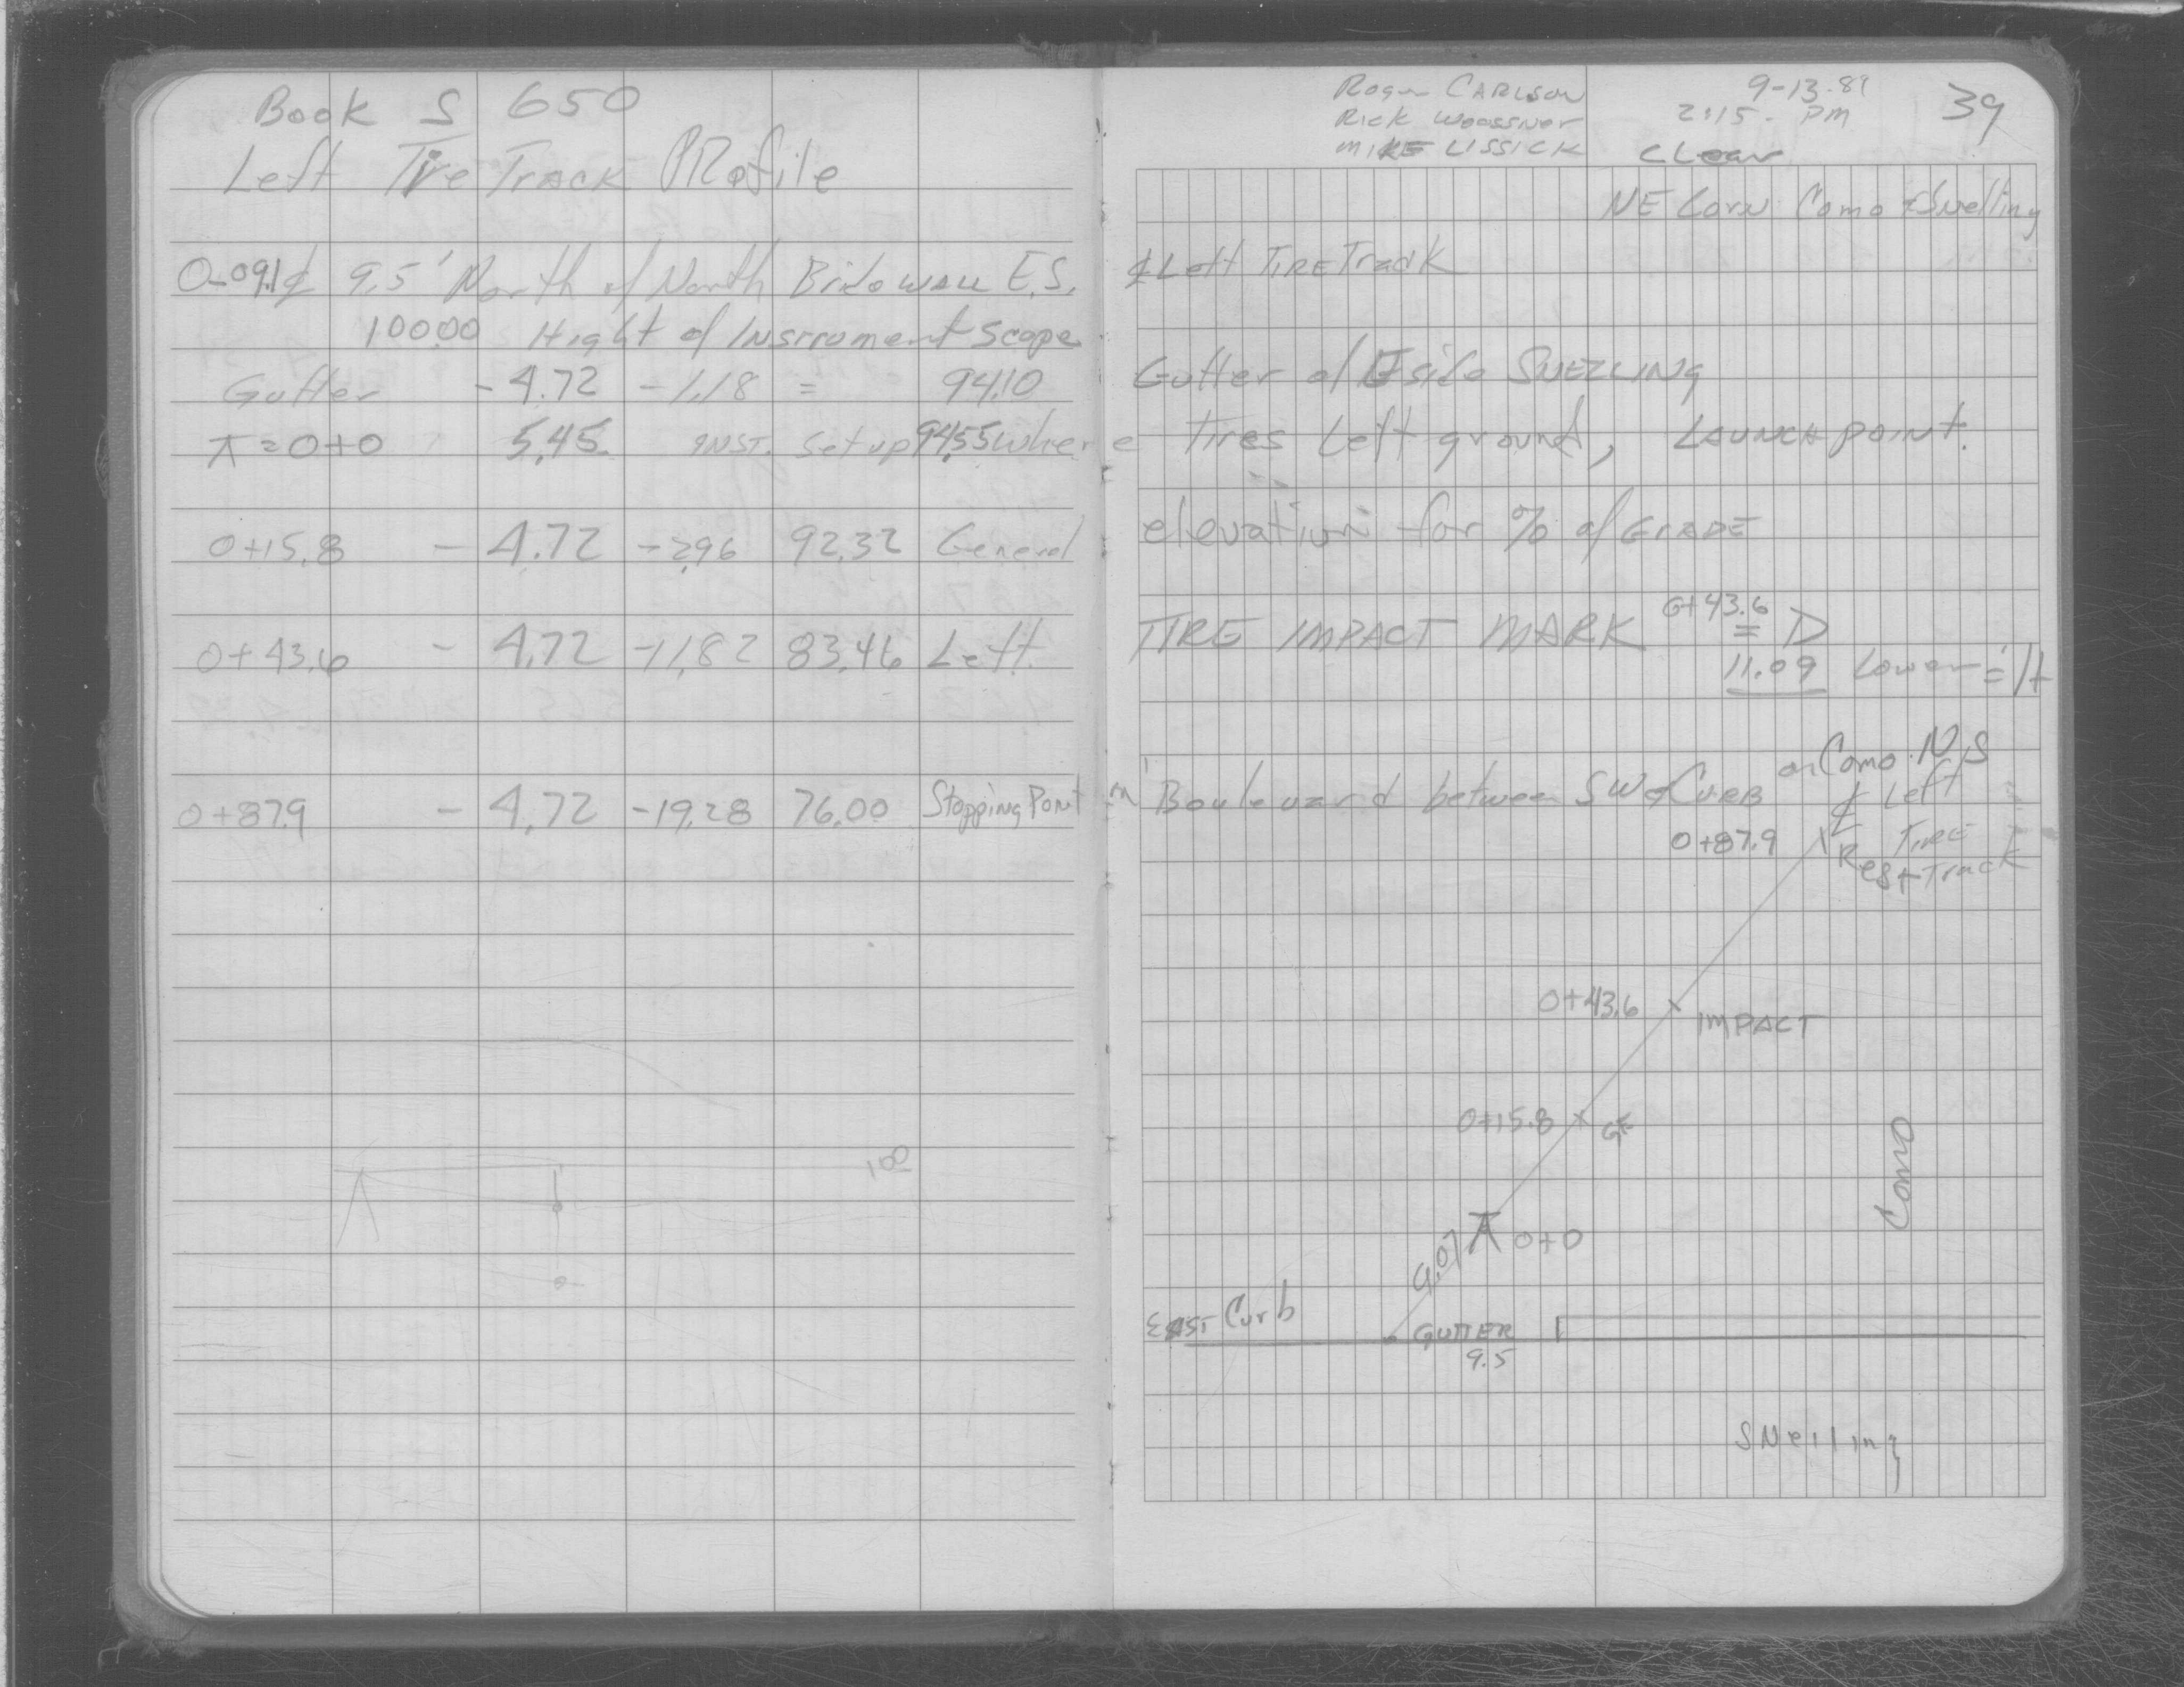 Book S 650
Left Tire Track PROfile
0-09.1 ℄ 9.5' North of North Bridgwall E.S.
100.00 Hight of Instrument Scope
Gutter - 4.72 - 1.18 = 94.10
⊼ = 0+0 5.45 INST. Set up 94.55 where
0+15.8 - 4.72 - 2.96 92.32 General
0+43.6 - 4.72 - 11.82 83.46 Left
0+87.9 - 4.72 - 19.28 76.00 Stopping Point
Roger CARLSON
Rick
MIKE LISSICK
9-13-89
2:15 - PM
CLear
39
NE Corn Como & Snelling
℄ Left TIRE Track
Gutter of E side SNELLING
tires Left ground, LAUNCH point.
elevation for % of GRADE
TIRE IMPACT MARK 0+43.6 = D
11.09 Lower = H
in Boulevard between SW & CURB on Como N.S
0+87.9 ℄ Left TIRE Track
Rest
0+43.6 IMPACT
0+15.8
⊼ 0+0
9.07
Como
EAST Curb
GUTTER
9.5
SNelling
100